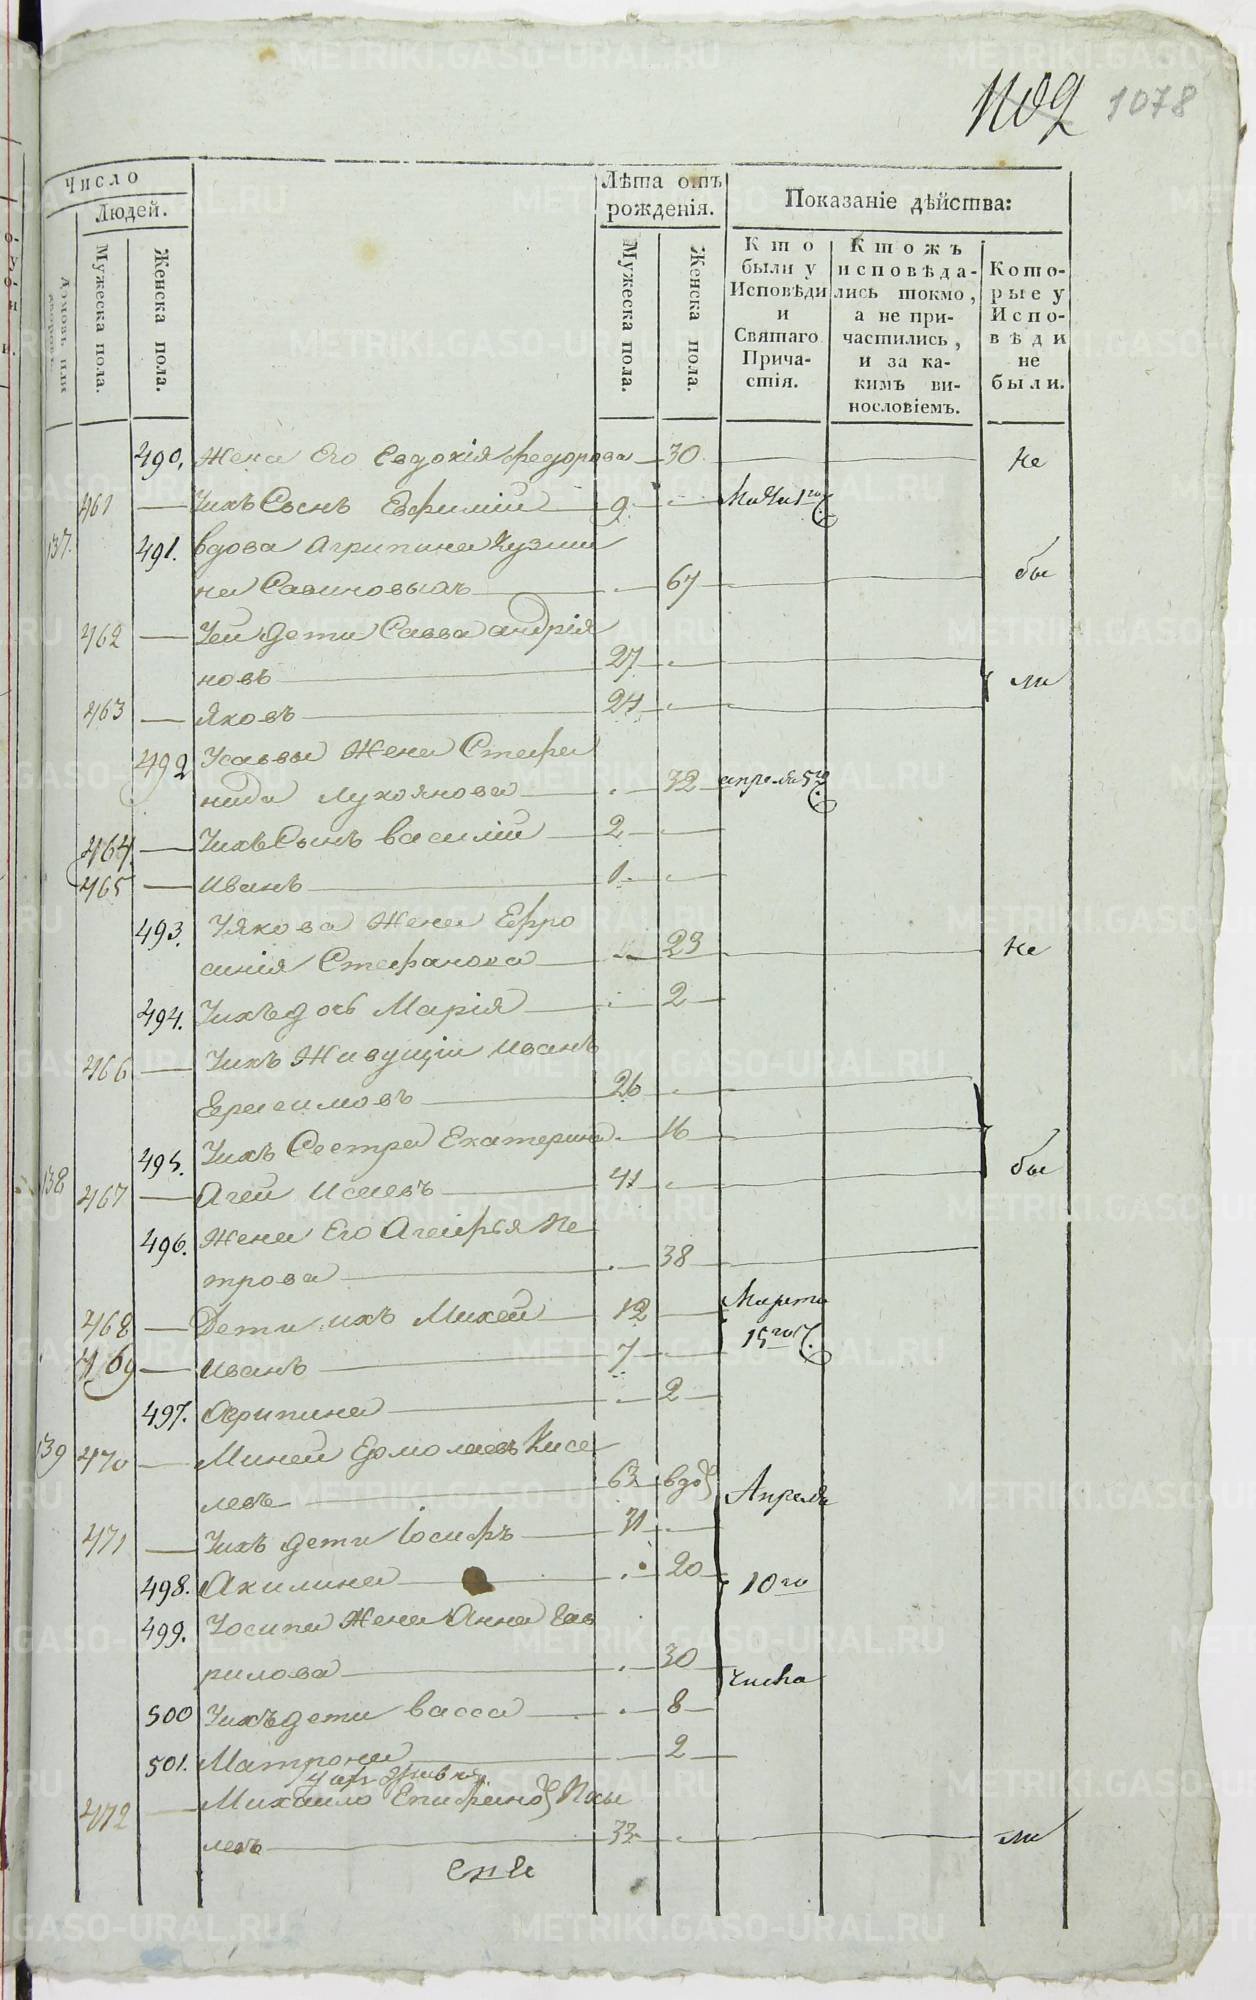 1078
Число
Людей.
Мужеска пола.
Женска пола.
Лѣта отъ рожденія.
Мужеска пола.
Женска пола.
Показаніе дѣйства:
Кто были у Исповѣди и Святаго Прича-стія.
Ктожъ исповѣда-лись токмо, а не при-частились, и за ка-кимъ ви-нословіемъ.
Кото-рые у Испо-вѣди не были.
490. Жена Его Евдокія Федорова 30 Не
461 Ихъ Сынъ Ефимій 9
137. 491. вдова Агрипина Кузми
на Савиновыхъ 67 бы
462 Ея дети Савва андрія
новъ 27 ли
463 Яковъ 24
492 Усаввы Жена Стефа
нида Лукоянова 32 апреля 5го
464. Ихъ Сынъ василій 2
465 Иванъ 1
493. Уякова Жена Ефро
синія Стефанова 23 Не
494. Ихъ дочь Марія 2
466 Уихъ Живущій Иванъ
Герасимовъ 26
495. Ихъ Сестра Екатерина 16
138 467 Агей Исаевъ 41 бы
496. Жена Его Агафья Пе
трова 38
468 Дети ихъ Михей 12 Марта
469 Иванъ 7 15го
497. Агрипина 2
139 470 Миней Ермолаевъ Кисе
левъ 63 вдов Апреля
471 Ихъ дети Іосифъ 31
498. Акилина 20 10го
499. Уосипа Жена Анна Гав
рилова 30 числа
500 Ихъ дети васса 8
501. Матрона 2
472 Михаило
левъ 33 ли